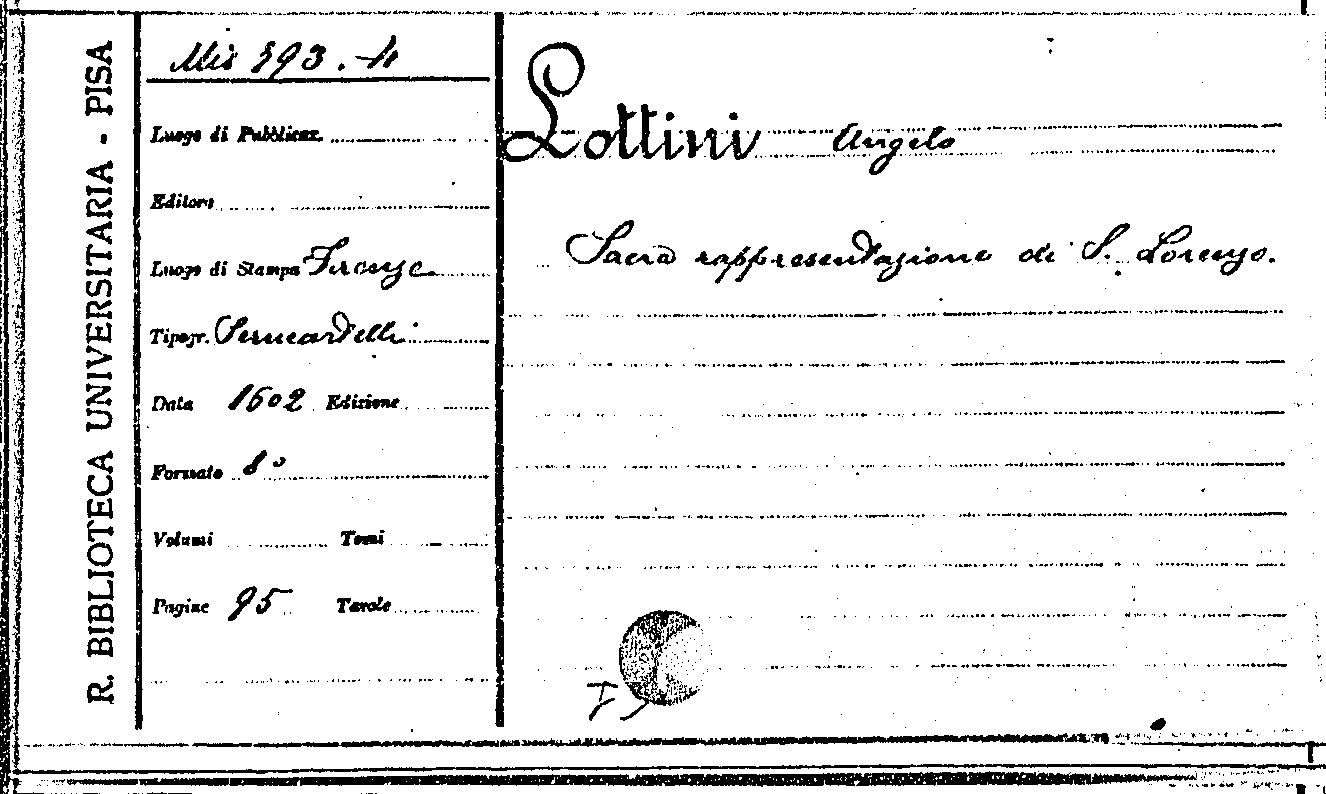 R. BIBLIOTECA UNIVERSITARIA - PISA
Mis 393.4
Luogo di Pubblicaz.
Editore
Luogo di Stampa Firenze
Tipogr. Sermartelli
Data 1602 Edizione
Formato 8°
Volumi Tomi
Pagine 95 Tavole
Lottini Angelo
Sacra rappresentazione di S. Lorenzo.